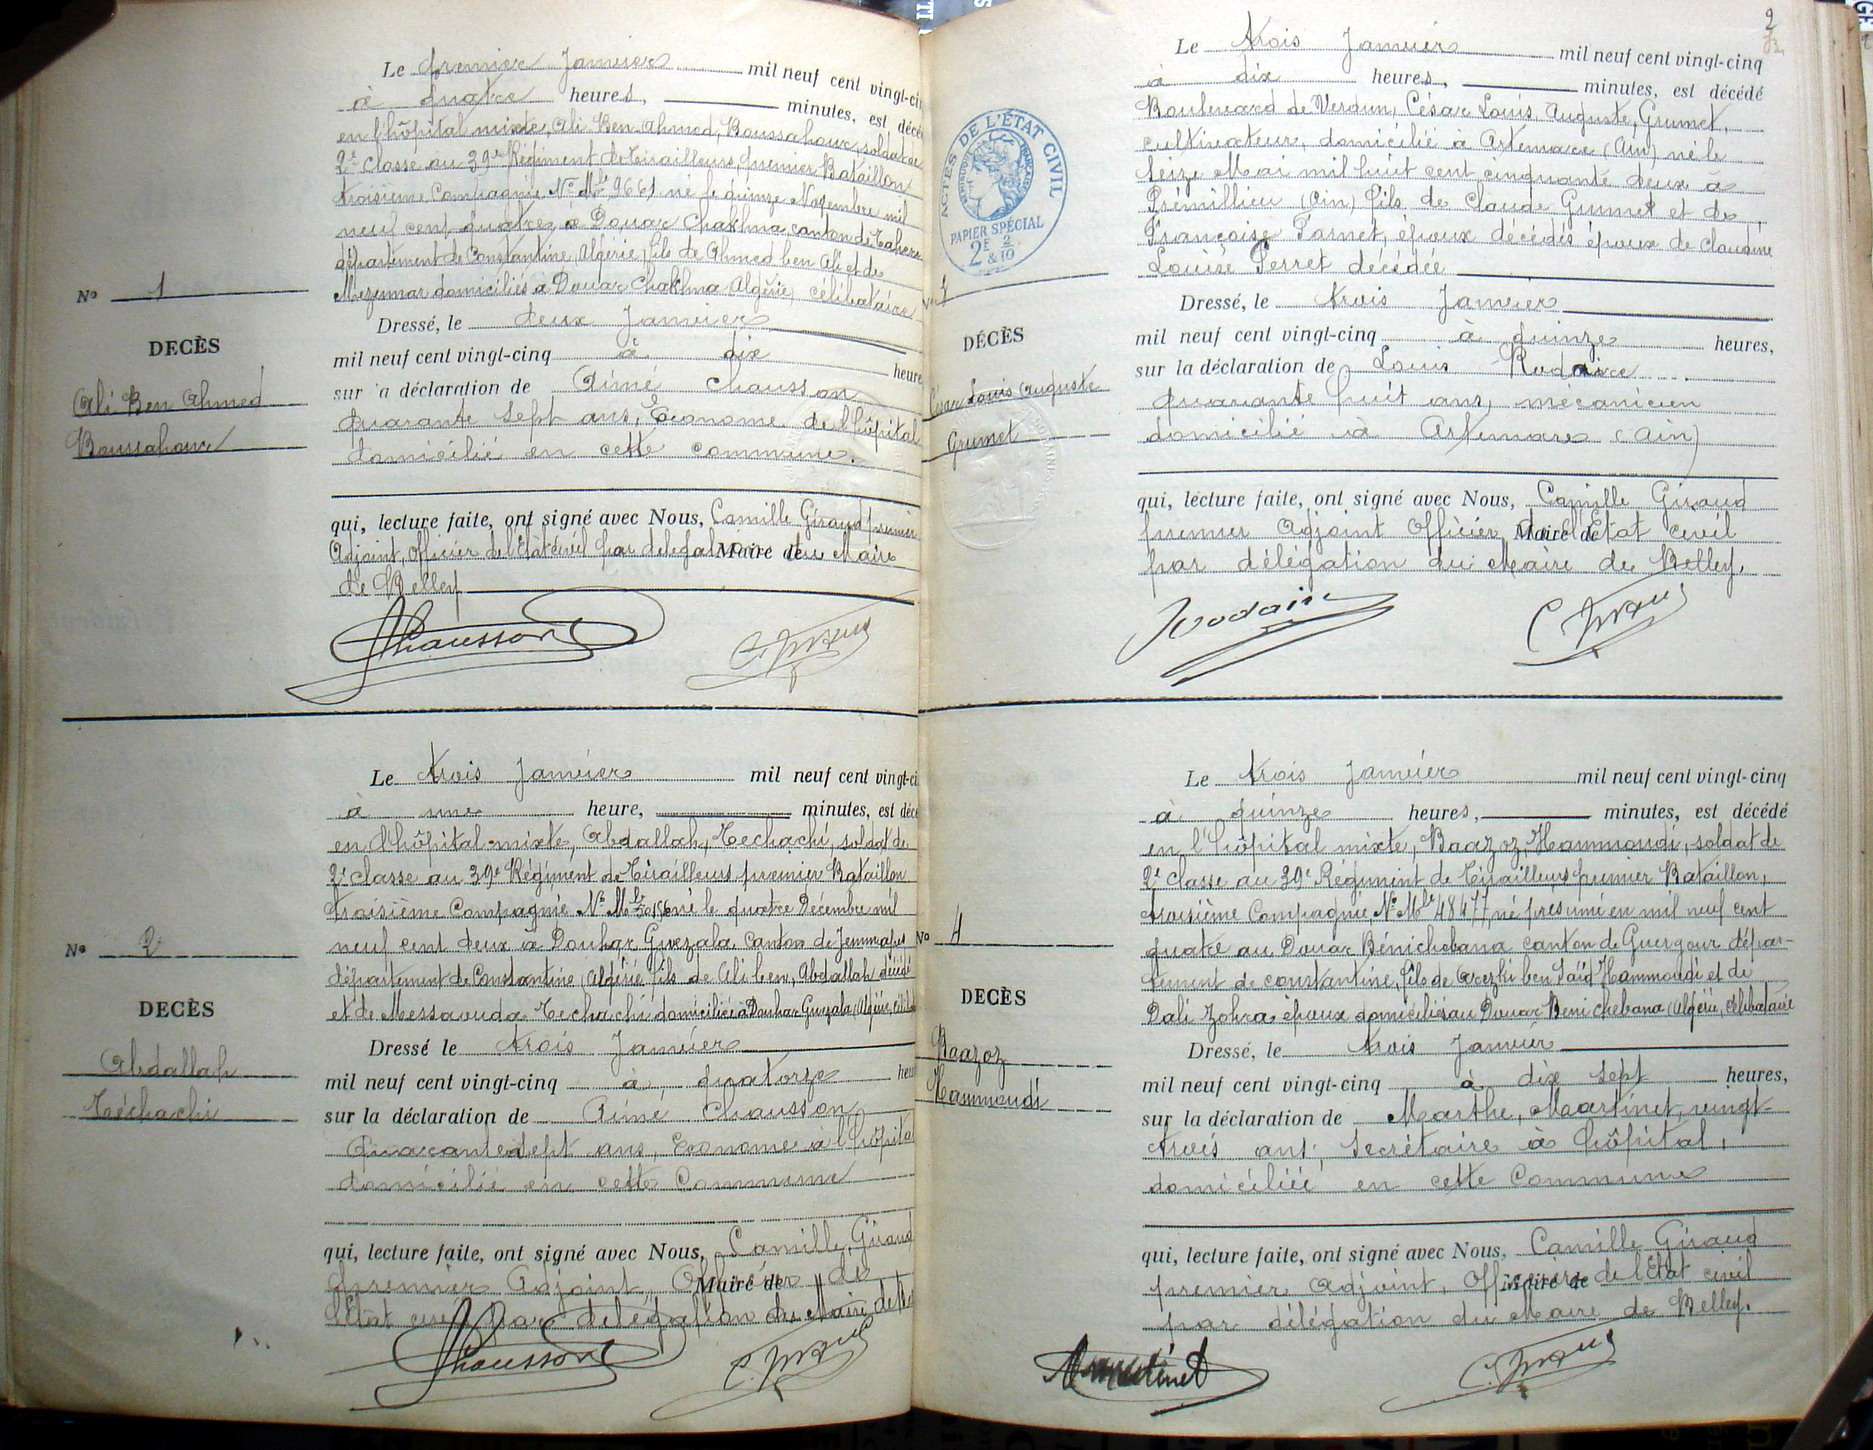 Le premier Janvier mil neuf cent vingt-ci
à quatre heures, minutes, est décé
en l'hôpital mixte, Ali Ben Ahmed, Boussahoux, soldat de
2e Classe au 39e Régiment de Tirailleurs, premier Bataillon
troisième Compagnie No Mle 9661 né le quinze Novembre mil
neuf cent quatre, à Douar Chakhma canton de Taher
département de Constantine, Algérie, fils de Ahmed ben Ali et de
domiciliés à Douar Chakhma Algérie, célibataire
No 1
Dressé, le deux Janvier
DECÈS
mil neuf cent vingt-cinq à dix heure
sur la déclaration de Aimé Chausson
Ali Ben Ahmed
quarante sept ans, Econome de l'hôpital
Boussahoux
domicilié en cette commune.
qui, lecture faite, ont signé avec Nous, Camille Giraud premier
Adjoint, Officier de l'Etat civil par delegation Maire de du Maire
de Belley
Chausson C. Giraud
Le trois Janvier mil neuf cent vingt-ci
à une heure, minutes, est décé
en l'hôpital mixte, Abdallah, Techachi, soldat de
2e classe au 39e Régiment de Tirailleurs premier Bataillon
troisième Compagnie No Mle né le quatre Décembre mil
No 2
neuf cent deux à Douhar Guezala canton de Jemmapes
département de Constantine, Algérie fils de Ali ben, Abdallah décédé
DECÈS
et de Messaouda Techachi domiciliée à Douhar Guezala (Algérie,
Dressé le trois Janvier
Abdallah
mil neuf cent vingt-cinq à quatorze heu
Téchachi
sur la déclaration de Aimé Chausson
Quarante sept ans, Econome à l'hôpital
domicilié en cette Commune
qui, lecture faite, ont signé avec Nous, Camille Giraud
premier Adjoint, Officier Maire de de
l'Etat civil par délégation du Maire de
Chausson C. Giraud
2
Le trois Janvier mil neuf cent vingt-cinq
à dix heures, minutes, est décédé
Boulevard de Verdun, César Louis Auguste, Grumet,
cultivateur, domicilié à Artemare (Ain) né le
seize Mai mil huit cent cinquante deux à
Prémillieu (Ain) fils de Claude Grumet et de
Françoise Parnet, époux décédés époux de Claudine
Louise Perret décédée
ACTES DE L'ÉTAT CIVIL
PAPIER SPÉCIAL
2F & 2/10
Dressé, le trois Janvier
DÉCÈS
mil neuf cent vingt-cinq à quinze heures,
sur la déclaration de Louis Rudaire
César Louis Auguste
quarante huit ans, mécanicien
Grumet
domicilié à Artemare (Ain)
qui, lecture faite, ont signé avec Nous, Camille Giraud
premier Adjoint Officier Maire de de l'Etat civil
par délégation du Maire de Belley.
C. Giraud
Le trois Janvier mil neuf cent vingt-cinq
à quinze heures, minutes, est décédé
en l'hôpital mixte, Baazoz, Hammoudi, soldat de
2e classe au 39e Régiment de Tirailleurs premier Bataillon,
troisième Compagnie, No Mle 48477, né présumé en mil neuf cent
No 4
quatre au Douar Bénichebana canton de Guergour dépar-
tement de constantine, fils de Arezki ben Saïd Hammoudi et de
DECÈS
Dali Zohra époux domiciliés au Douar Beni Chebana (Algérie, célibataire
Baazoz
Dressé, le trois Janvier
Hammoudi
mil neuf cent vingt-cinq à dix sept heures,
sur la déclaration de Marthe, Martinet, vingt
trois ans, Secrétaire à l'hôpital,
domiciliée en cette Commune
qui, lecture faite, ont signé avec Nous, Camille Giraud
premier Adjoint, Officier Maire de de l'Etat civil
par délégation du Maire de Belley.
Martinet C. Giraud